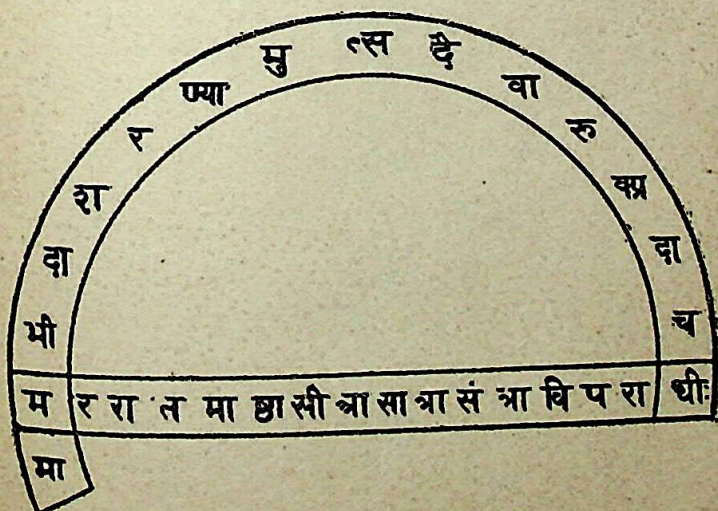 भी दा श र ण्या मु त्स दै वा रु क्प्र दा च
म र रा त मा ष्ठा सी त्रा सा त्रा सं त्रा वि प रा धीः
मा